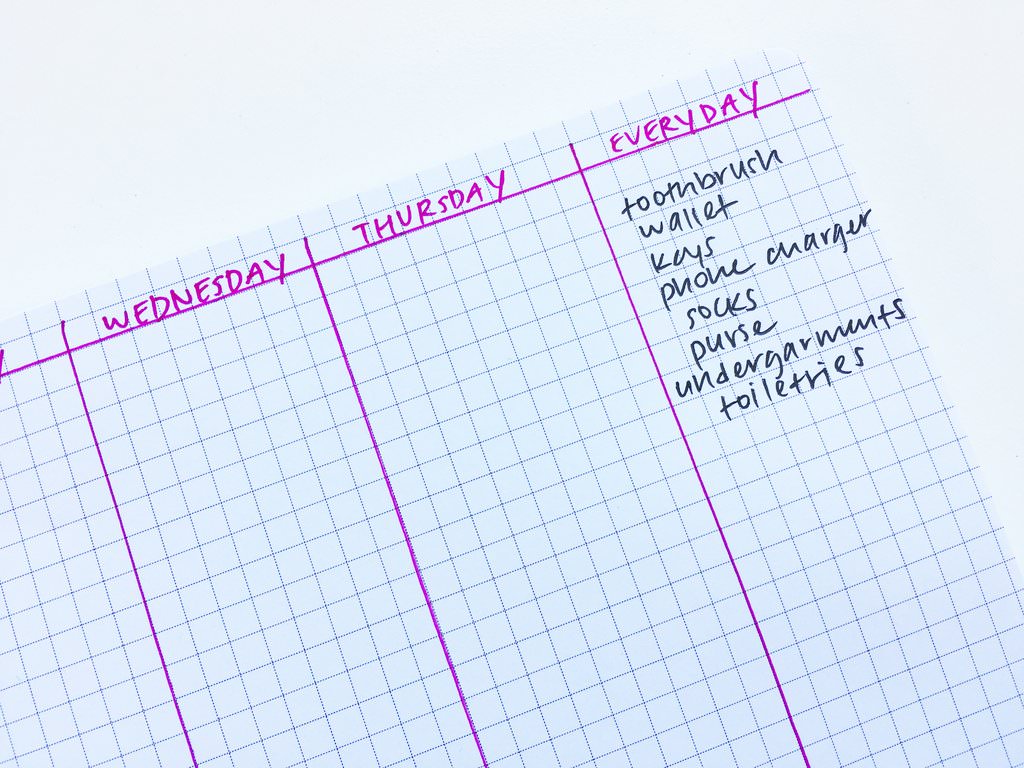 WEDNESDAY
THURSDAY
EVERYDAY
toothbrush
wallet
keys
phone charger
socks
purse
undergarments
toiletries